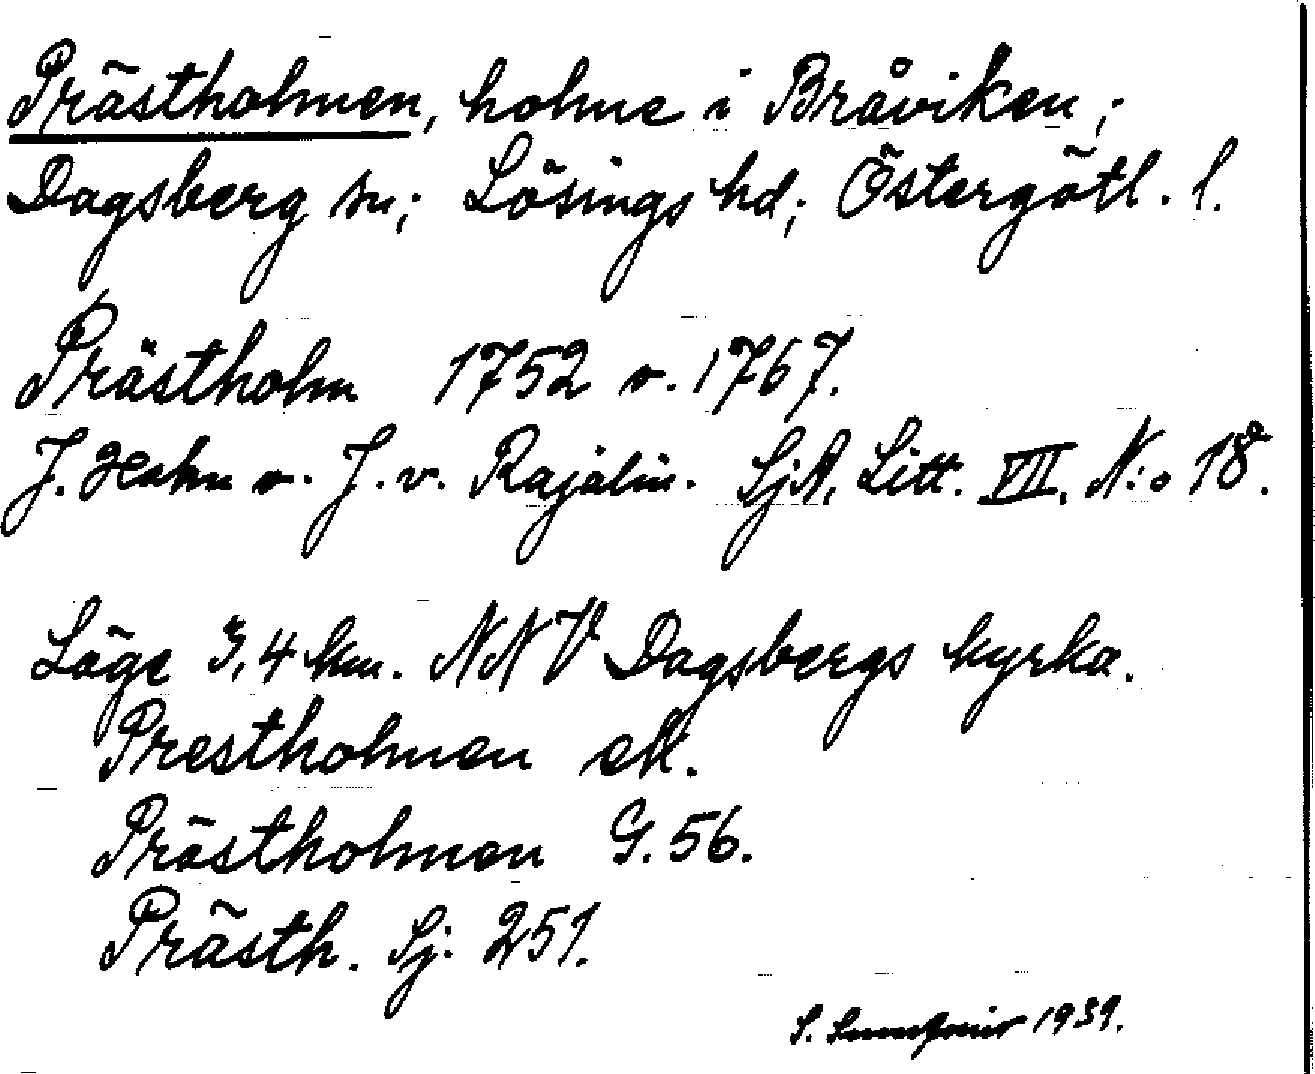 Prästholmen, holme i Bråviken;
Dagsberg sn; Lösings hd; Östergötl. l.
Prästholm 1752 o. 1767.
J. Hahn o. J. v. Rajalin. SjA, Litt. VII, N:o 18.
Läge 3,4 km. NNV Dagsbergs kyrka.
Prestholmen ek.
Prästholmen G. 56.
Prästh. Sj. 251.
S. 1939.